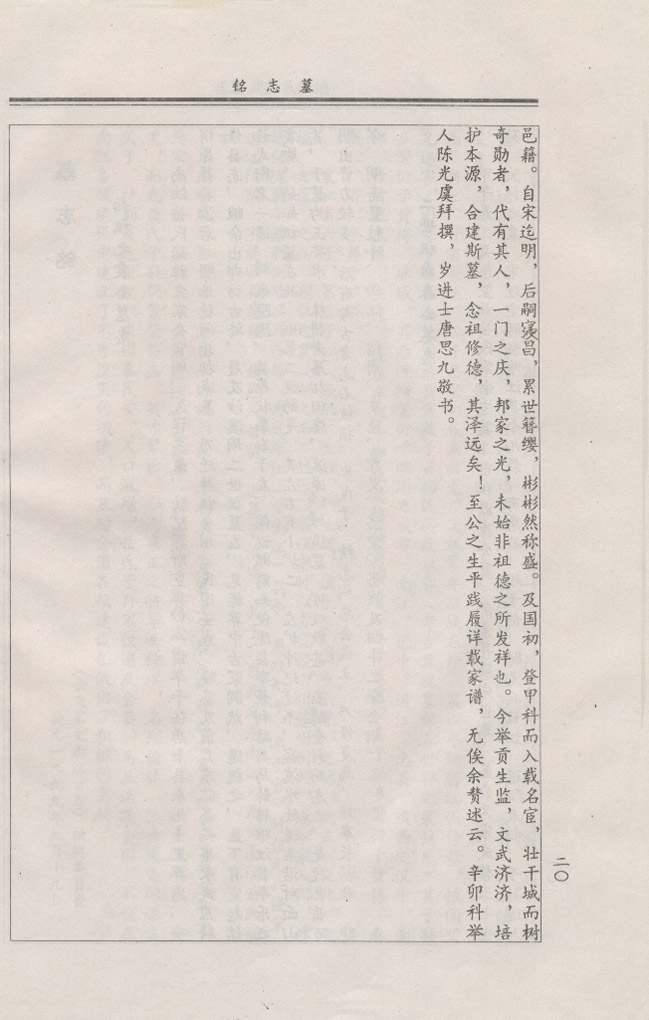 墓志铭
邑籍。自宋迄明，后嗣寖昌，累世簪缨，彬彬然称盛。及国初，登甲科而入载名宦，壮干城而树
奇勋者，代有其人，一门之庆，邦家之光，未始非祖德之所发祥也。今举贡生监，文武济济，培
护本源，合建斯墓，念祖修德，其泽远矣！至公之生平践履详载家谱，无俟余赘述云。辛卯科举
人陈光虞拜撰，岁进士唐思九敬书。
二〇